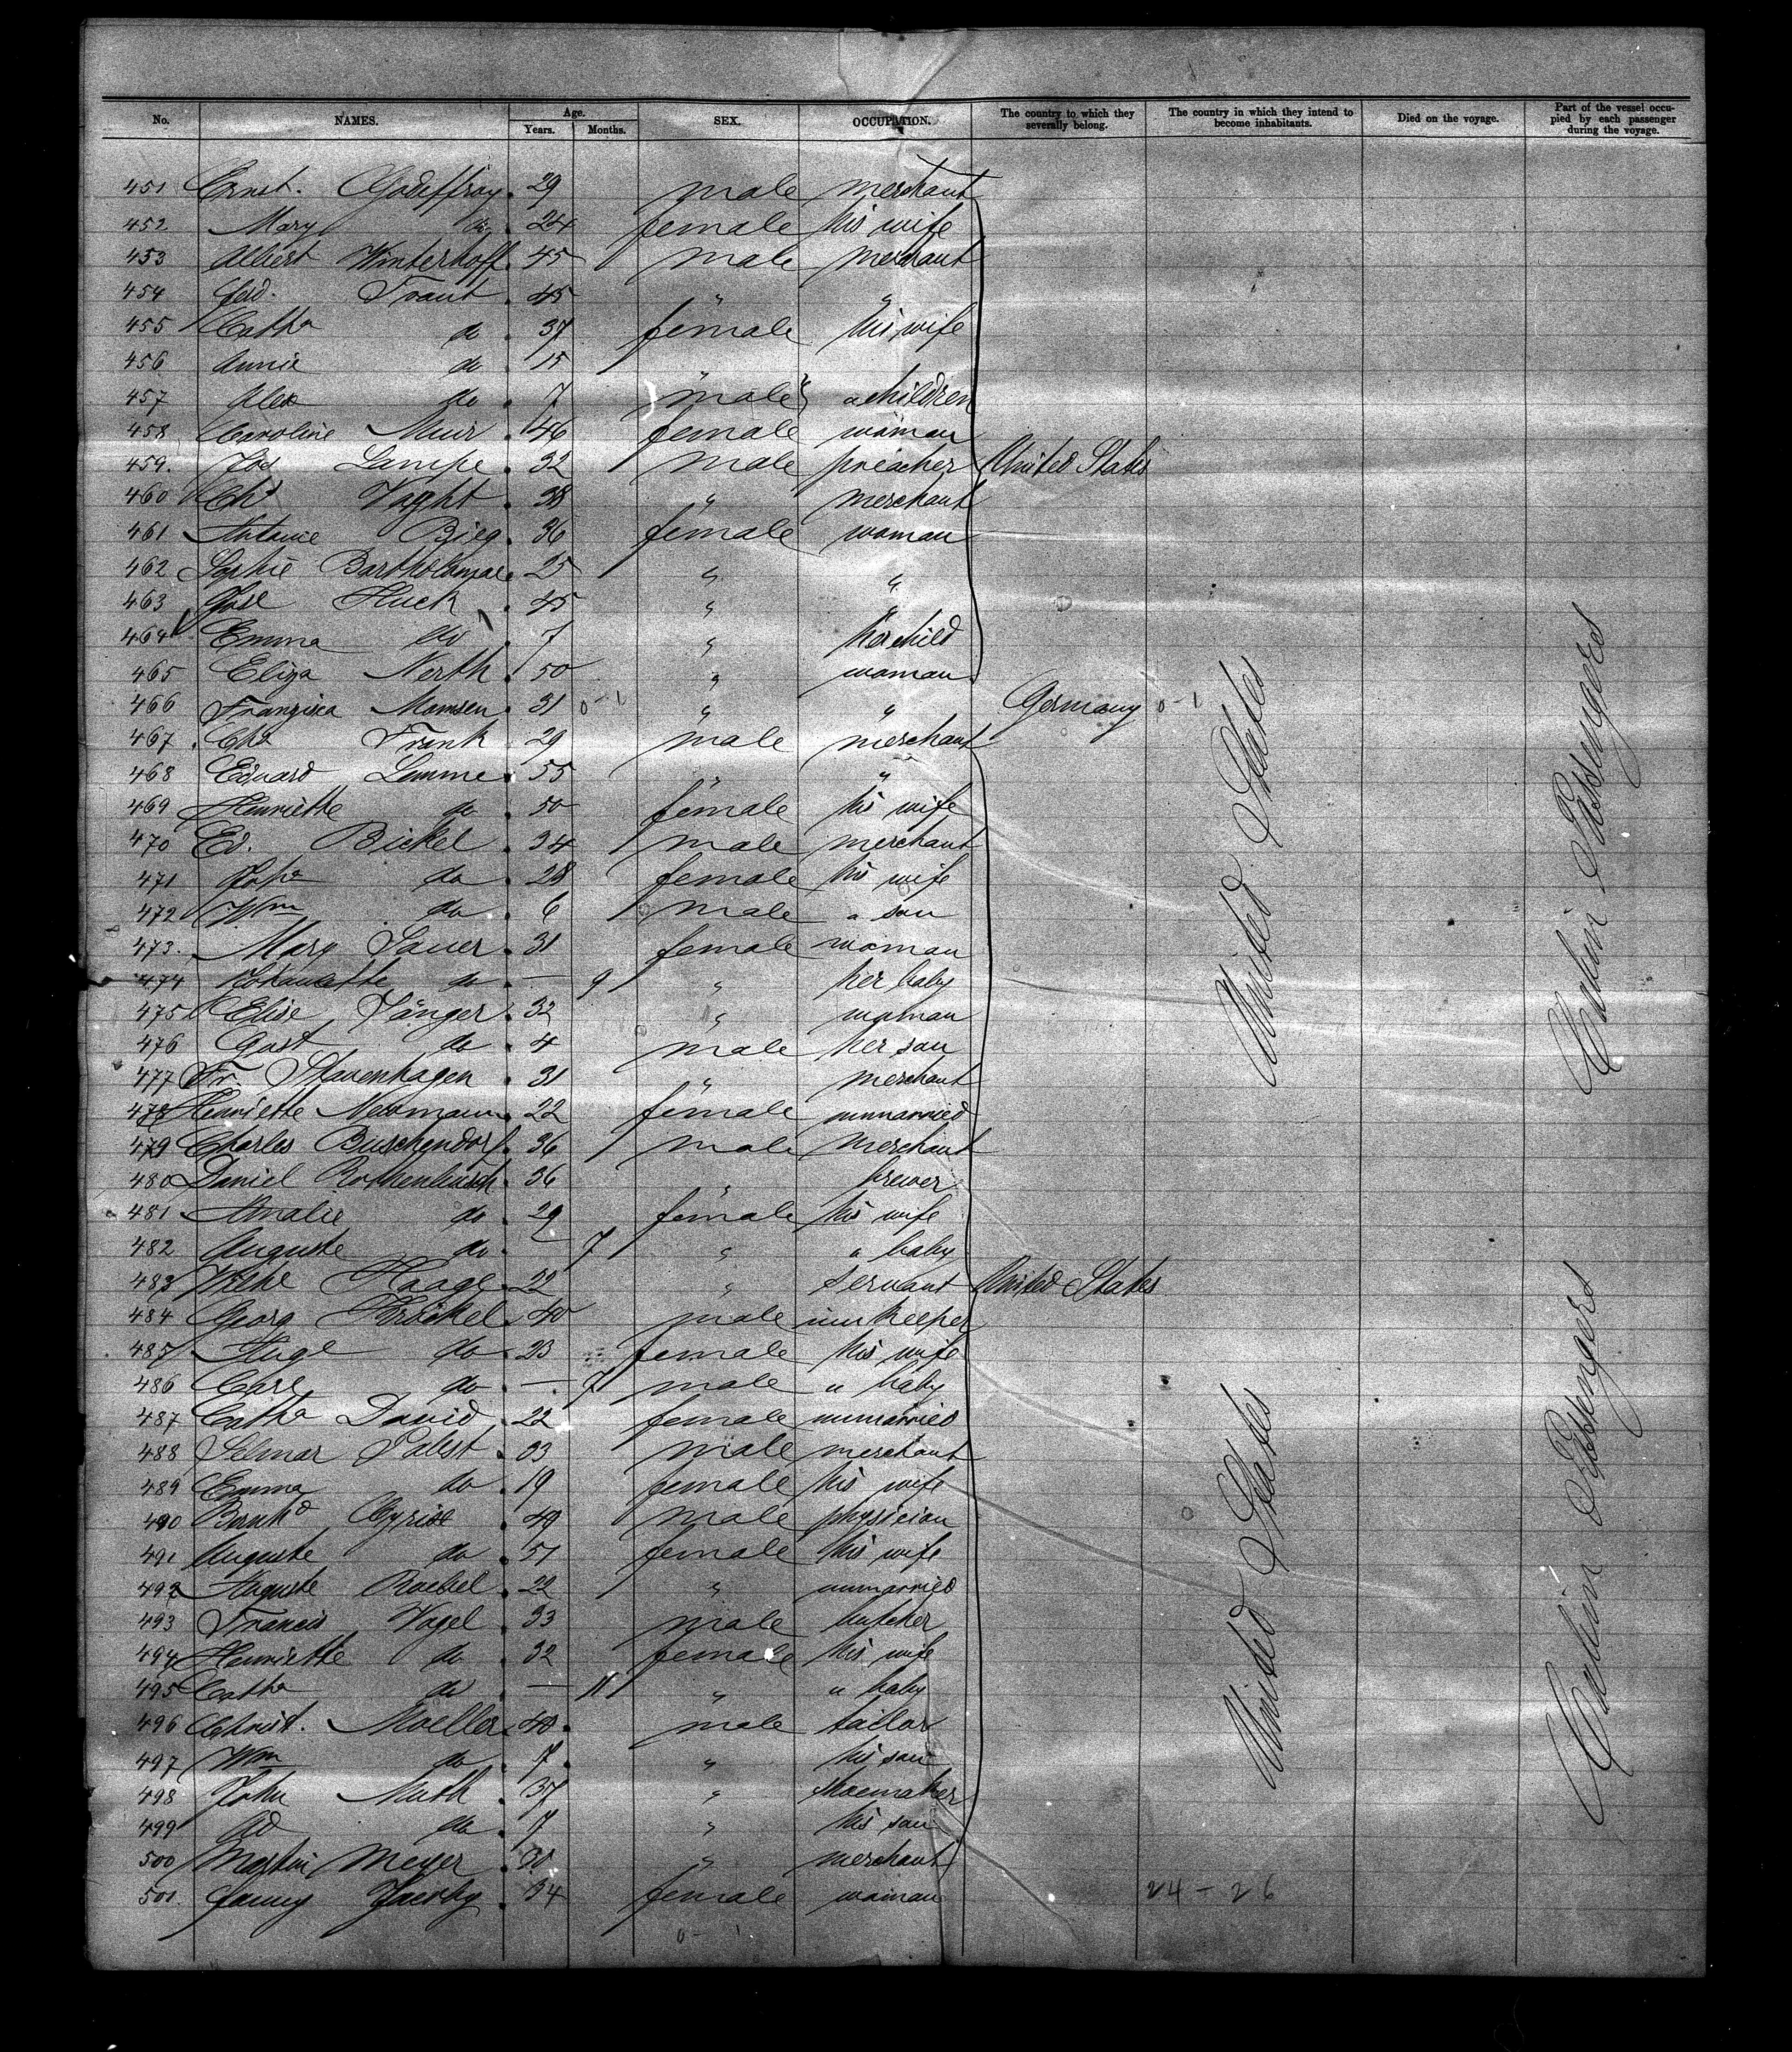 No. NAMES. Age. Years. Months. SEX. OCCUPATION. The country to which they severally belong. The country in which they intend to become inhabitants. Died on the voyage. Part of the vessel occupied by each passenger during the voyage.
451 Ernst. Godeffroy 29 male merchant
452 Mary do 24 female his wife
453 Albert Winterhoff 45 male merchant
454 Ferd. Traut 45 " "
455 Catha do 37 female his wife
456 Annie do 15 "
457 Alex do 7 male children
458 Caroline Muur 46 female woman
459. Jos Lampe 32 male preacher United States
460 Chs Voght 38 " merchant
461 Antonie Bieg 36 female woman
462 Sophie Bartholomae 25 " "
463 Huck 45 " "
464 Emma do 7 " her child
465 Eliza Nerth 50 " woman
466 Franzisca Momsen 31 " " Germany
467 Chs Frank 29 male merchant
468 Eduard Lemme 55 " "
469 Henriette do 50 female his wife
470 Ed. Bickel 34 male merchant
471 do 28 female his wife
472 Wm do 6 male a son
473. Mary Sauer 31 female woman
474 do — 9 " her baby
475 Elise Sänger 32 " woman
476 Gust do 4 male her son
477 Fr. Stavenhagen 31 " merchant
478 Henriette Neumann 22 female unmarried
479 Charles Buschendorf 36 male merchant
480 Daniel Rothenbusch 36 " brewer
481 Amalie do 29 female his wife
482 Auguste do — 7 " a baby
483 Haage 22 " servant United States
484 Georg Kröckel 40 male inn keeper
485 do 23 female his wife
486 Carl do — 7 male a baby
487 Catha David 22 female unmarried
488 Selmar Pabst 33 male merchant
489 Emma do 19 female his wife
490 Bernhd 49 male physician
491 Auguste do 51 female his wife
492 Auguste Roebel 22 " unmarried
493 Francis Vogel 33 male butcher
494 Henriette do 32 female his wife
495 Catha do — 11 " a baby
496 Christ. Moeller 40 male tailor
497 Wm do 7 " his son
498 John Muth 37 " shoemaker
499 Ad do 7 " his son
500 Martin Meyer 30 " merchant
501. Fanny Jacoby 34 female woman
United States
United States
Cabin Passengers
Cabin Passengers
24 - 26